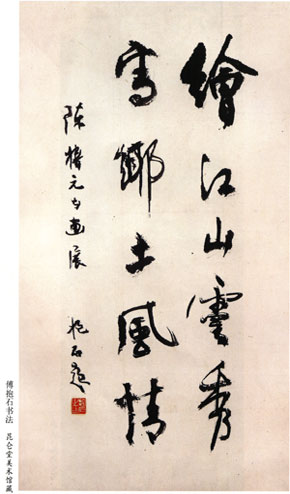 繪江山靈秀
寫鄉土風情
陳元畫展
抱石題
傅抱石书法 昆仑堂美术馆藏